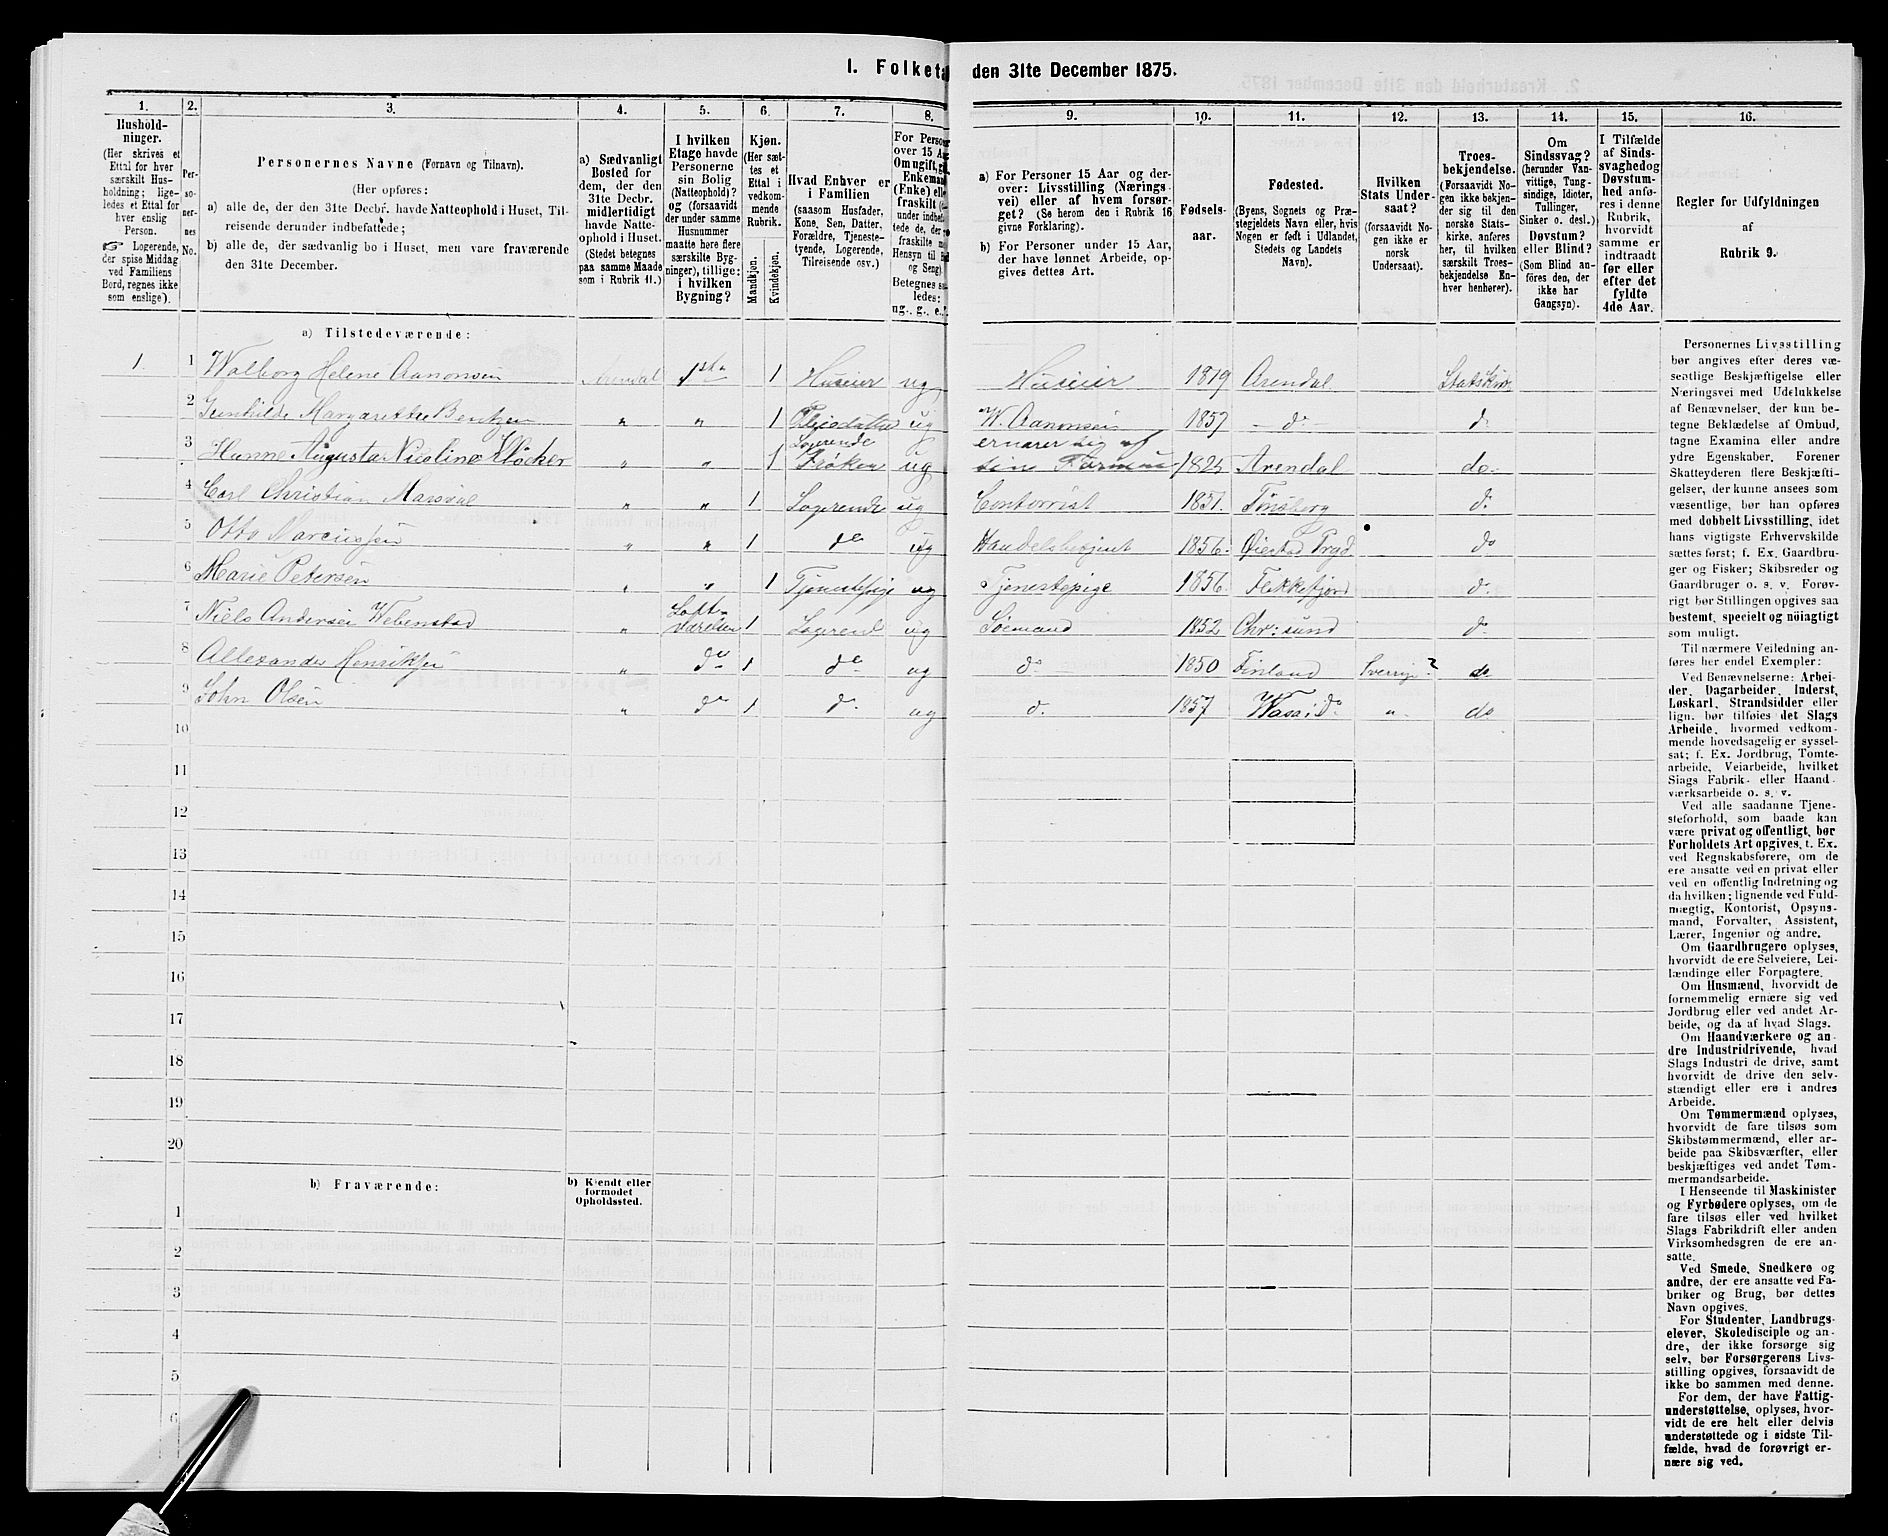 1. Folketa den 31te December 1875.
1. 2. 3. 4. 5. 6. 7. 8. 9. 10. 11. 12. 13. 14. 15. 16.
Hushold-
ninger.
(Her skrives et
Ettal for hver
særskilt Hus-
holdning; lige-
ledes et Ettal for
hver enslig
Person.
☞ Logerende,
der spise Middag
ved Familiens
Bord, regnes ikke
som enslige).
Per-
so-
ner-
nes
No.
Personernes Navne (Fornavn og Tilnavn).
(Her opføres:
a) alle de, der den 31te Decbr. havde Natteophold i Huset, Til-
reisende derunder indbefattede;
b) alle de, der sædvanlig bo i Huset, men vare fraværende
den 31te December.
a) Sædvanligt
Bosted for
dem, der den
31te Decbr.
midlertidigt
havde Natte-
ophold i Huset.
(Stedet betegnes
paa samme Maade
som i Rubrik 11.)
I hvilken
Etage havde
Personerne
sin Bolig
(Natteophold)?
og (forsaavidt
der under samme
Husnummer
maatte høre flere
særskilte Byg-
ninger), tillige:
i hvilken
Bygning?
Kjøn.
(Her sæt-
tes et
Ettal i
vedkom-
mende
Rubrik.
Mandkjøn.
Kvindekjøn.
Hvad Enhver er
i Familien
(saasom Husfader,
Kone, Søn, Datter,
Forældre, Tjeneste-
tyende, Logerende,
Tilreisende osv.)
For Person
over 15 Aa
Om ugift, gif
Enkemand
(Enke) elle
fraskilt
under indbefa
tede de, der
fraskilte
Hensyn til B
og Seng).
Betegnes saa
ledes:
ug., g., e.,
a) For Personer 15 Aar og der-
over: Livsstilling (Nærings-
vei) eller af hvem forsør-
get? (Se herom den i Rubrik 16
givne Forklaring).
b) For Personer under 15 Aar,
der have lønnet Arbeide, op-
gives dettes Art.
Fødsels-
aar.
Fødested.
(Byens, Sognets og Præ-
stegjeldets Navn eller, hvis
Nogen er født i Udlandet,
Stedets og Landets
Navn).
Hvilken
Stats Under-
saat?
(forsaavidt No-
gen ikke er
norsk
Undersaat).
Troes-
bekjendelse.
(Forsaavidt No-
gen ikke bekjen-
der sig til den
norske Stats-
kirke, anføres
her, til hvilken
særskilt Troes-
bekjendelse En-
hver henhører).
Om
Sindssvag?
(herunder Van-
vittige, Tung-
sindige, Idioter,
Tullinger,
Sinker o. desl.)
Døvstum?
eller Blind?
(Som Blind an-
føres den, der
ikke har
Gangsyn).
I Tilfælde
af Sinds-
svaghed og
Døvstum-
hed anfø-
res i denne
Rubrik,
hvorvidt
samme er
indtraadt
før eller
efter det
fyldte
4de Aar.
Regler for Udfyldningen
af
Rubrik 9.
a) Tilstedeværende:
1. 1 Walborg Helene Aanonsen Arendal 1ste 1 Huseier ug Huseier 1819 Arendal Statskirk
2 Gunhilde Margarethe Bentzen „ „ 1 Pleiedatter ug W. Aanonsen 1857 do do
3 Hanne Augusta Nicoline Kløcker „ „ 1 Logerende Frøken ug ernærer sig af sin Formue 1825 Arendal do
4 Carl Christian „ „ 1 Logerende ug Contorrist 1851. Tønsberg do
5 Otto Marcussen „ „ 1 do ug Handelsbetjent 1856. Øiestad Prgd do
6 Marie Petersen „ „ 1 Tjenestepige ug Tjenestepige 1856. Flekkefjord do
7 Niels Andersen Webenstad „ Loft-værelse 1 Logerend ug Sømand 1852 Chr: sund do
8 Allexander Henriksen „ do 1 do ug do 1850 Finland Sverrig? do
9 John Olsen „ do 1 do ug do 1857 Wasa i do „ do
10
11
12
13
14
15
16
17
18
19
20
b) Fraværende:
b) Kjendt eller
formodet
Opholdssted.
1
2
3
4
5
6
Personernes Livsstilling
bør angives efter deres væ-
sentlige Beskjæftigelse eller
Næringsvei med Udelukkelse
af Benævnelser, der kun be-
tegne Beklædelse af Ombud,
tagne Examina eller andre
ydre Egenskaber. Forener
Skatteyderen flere Beskjæfti-
gelser, der kunne ansees som
væsentlige, bør han opføres
med dobbelt Livsstilling, idet
hans vigtigste Erhvervskilde
sættes først; f. Ex. Gaardbru-
ger og Fisker; Skibsreder og
Gaardbruger o. s. v. Forøv-
rigt bør Stillingen opgives saa
bestemt, specielt og nöiagtigt
som muligt.
Til nærmere Veiledning an-
føres her endel Exempler:
Ved Benævnelserne: Arbei-
der, Dagarbeider, Inderst,
Løskarl, Strandsidder eller
lign. bør tilføies det Slags
Arbeide, hvormed vedkom-
mende hovedsagelig er syssel-
sat; f. Ex. Jordbrug, Tomte-
arbeide, Veiarbeide, hvilket
Slags Fabrik- eller Haand-
værksarbeide o. s. v.
Ved alle saadanne Tjene-
steforhold, som baade kan
være privat og offentligt, bør
Forholdets Art opgives, t. Ex.
ved Regnskabsførere, om de
ere ansatte ved en privat eller
ved en offentlig Indretning og
da hvilken; lignende ved Fuld-
mægtig, Kontorist, Opsyns-
mand, Forvalter, Assistent,
Lærer, Ingeniør og andre.
Om Gaardbrugere oplyses,
hvorvidt de ere Selveiere, Lei-
lændinge eller Forpagtere.
Om Husmænd, hvorvidt de
fornemmelig ernære sig ved
Jordbrug eller ved andet Ar-
beide, og da af hvad Slags.
Om Haandværkere og an-
dre Industridrivende, hvad
Slags Industri de drive, samt
hvorvidt de drive den selv-
stændigt eller ere i andres
Arbeide.
Om Tømmermænd oplyses,
hvorvidt de fare tilsøs som
Skibstømmermænd, eller ar-
beide paa Skibsværfter, eller
beskjæftiges ved andet Tøm-
mermandsarbeide.
I Henseende til Maskinister
og Fyrbødere oplyses, om de
fare tilsøs eller ved hvilket
Slags Fabrikdrift eller anden
Virksomhedsgren de ere an-
satte.
Ved Smede, Snedkere og
andre, der ere ansatte ved Fa-
briker og Brug, bør dettes
Navn opgives.
For Studenter, Landbrugs-
elever, Skoledisciple og an-
dre, der ikke forsørge sig
selv, bør Forsørgerens Livs-
stilling opgives, forsaavidt de
ikke bo sammen med denne.
For dem, der have Fattig-
understøttelse, oplyses, hvor-
vidt de ere helt eller delvis
understøttede og i sidste Til-
fælde, hvad de forøvrigt er-
nære sig ved.